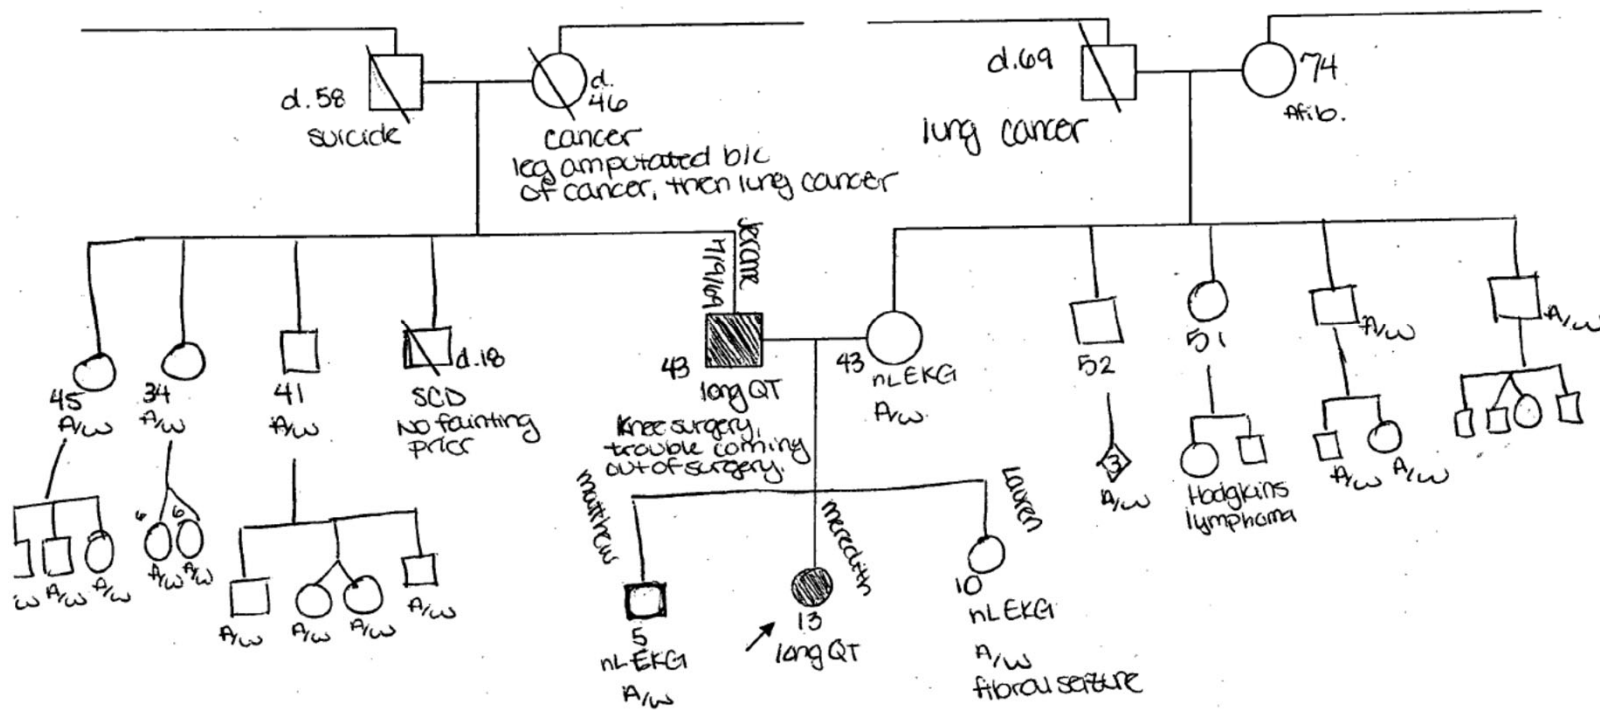 d.58
suicide
d.
46
cancer
leg amputated b/c
of cancer, then lung cancer
d.69
lung cancer
74
Afib.
Jerome
7/9/69
45
A/W
34
A/W
41
A/W
d.18
SCD
No fainting
prior
43
long QT
Knee surgery,
trouble coming
out of surgery.
43
nL EKG
A/W
52
51
A/W
A/W
3
A/W
Hodgkins
lymphoma
A/W
A/W
W
A/W
A/W
6
6
A/W
A/W
A/W
A/W
A/W
A/W
matthew
5
nL EKG
A/W
meredith
13
long QT
Lauren
10
nL EKG
A/W